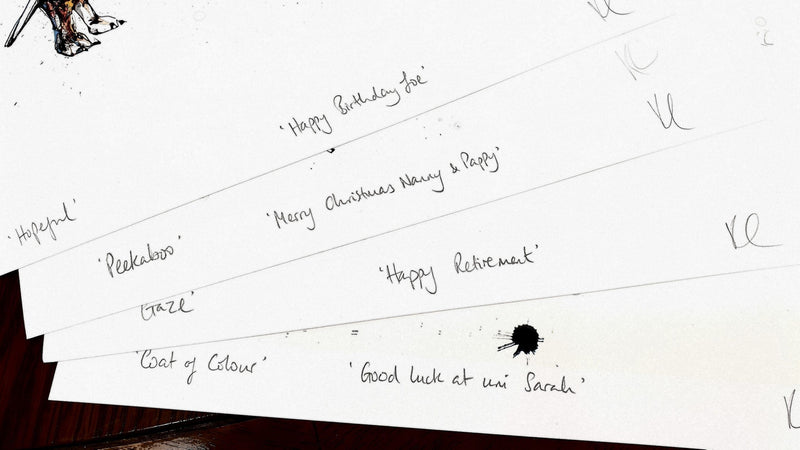 'Hopeful' 'Happy Birthday Joe' KC
'Peekaboo' 'Merry Christmas Nanny & Pappy' KC
Gaze' 'Happy Retirement' KC
'Coat of Colour' 'Good luck at uni Sarah'